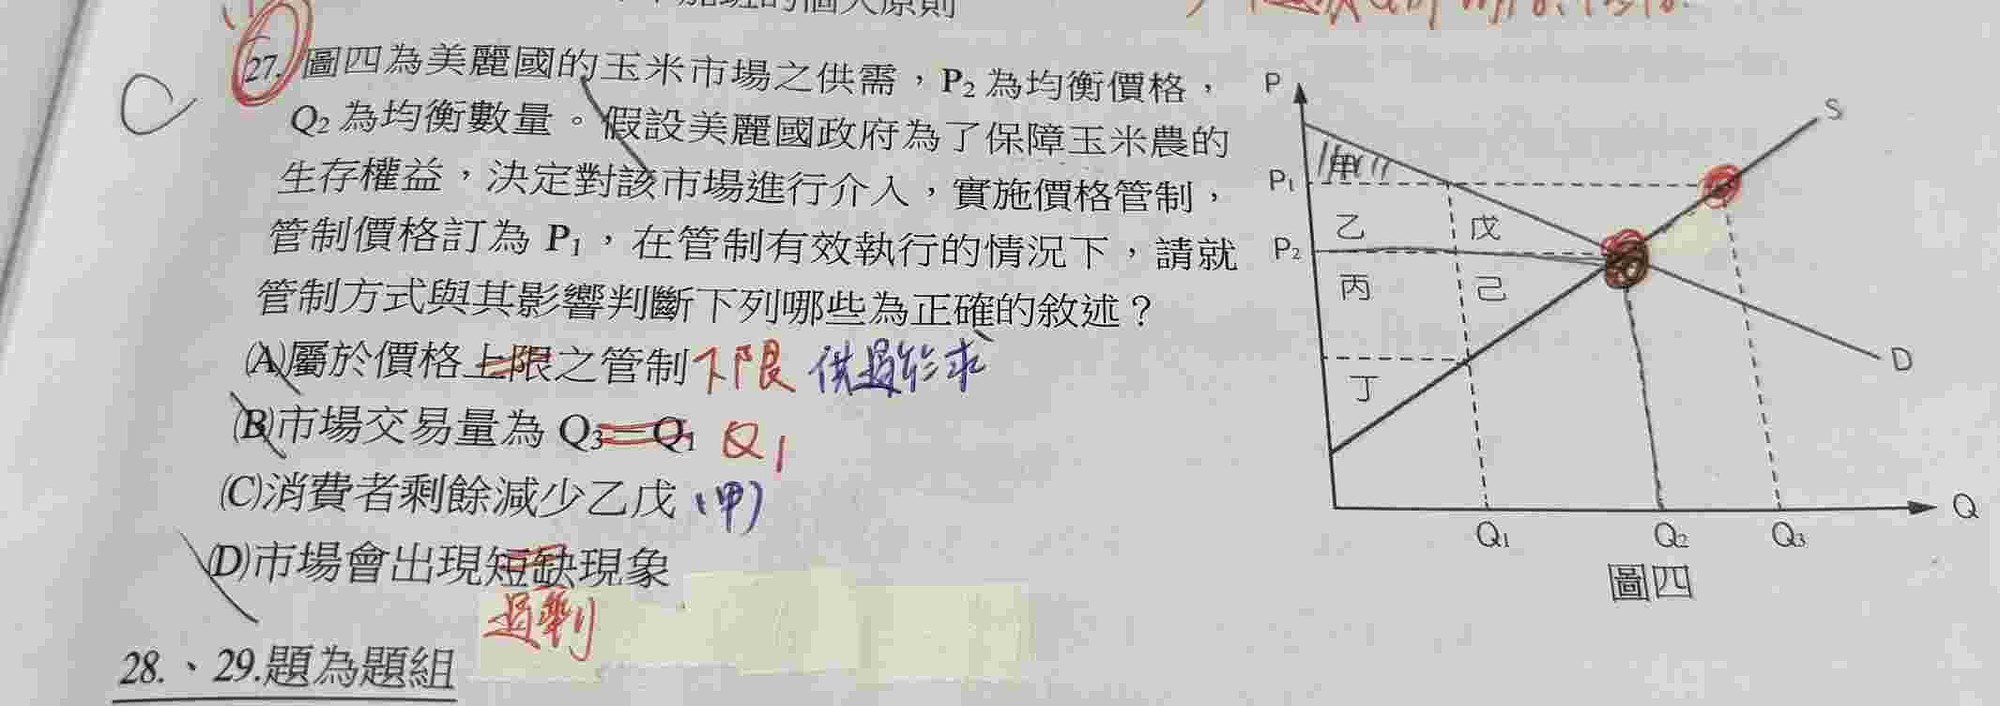 27. 圖四為美麗國的玉米市場之供需，P2 為均衡價格，
Q2 為均衡數量。假設美麗國政府為了保障玉米農的
生存權益，決定對該市場進行介入，實施價格管制，
管制價格訂為 P1，在管制有效執行的情況下，請就
管制方式與其影響判斷下列哪些為正確的敘述？
(A)屬於價格上限之管制 下限 供過於求
(B)市場交易量為 Q3－Q1 Q1
(C)消費者剩餘減少乙戊 (甲)
(D)市場會出現短缺現象
過剩
28.、29.題為題組
C
P
S
P1
甲
乙
戊
P2
丙
己
丁
D
Q1
Q2
Q3
Q
圖四